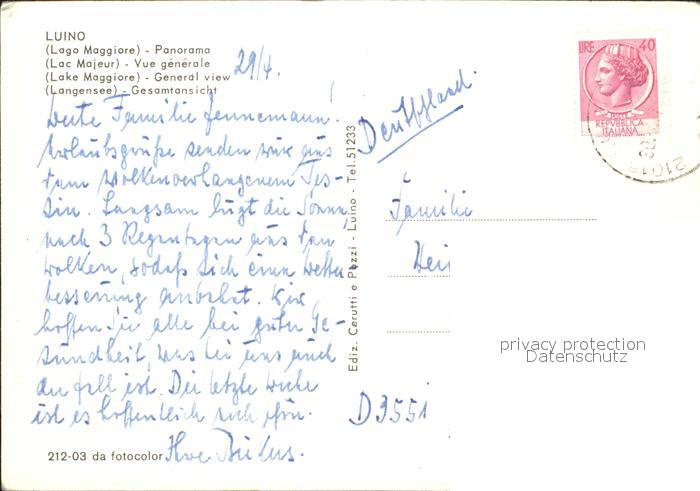 LUINO
(Lago Maggiore) - Panorama
(Lac Majeur) - Vue générale
(Lake Maggiore) - General view
(Langensee) - Gesamtansicht
29/4.
Werte Familie Jennemann!
Urlaubsgrüße senden wir aus
dem wolkenverhangenem Tes-
sin. Langsam lugt die Sonne
nach 3 Regentagen aus den
Wolken, sodaß sich eine Wetter
besserung anbahnt. Wir
hoffen Sie alle bei guter Ge-
sundheit, was bei uns auch
der Fall ist. Die letzte Woche
ist es hoffentlich noch schön.
Ihre
212-03 da fotocolor
Ediz. Cerutti e Pozzi - Luino - Tel. 51233
Deutschland.
LIRE 40
POSTE
REPVBBLICA
ITALIANA
21016
Familie
Hei
D3551
privacy protection
Datenschutz